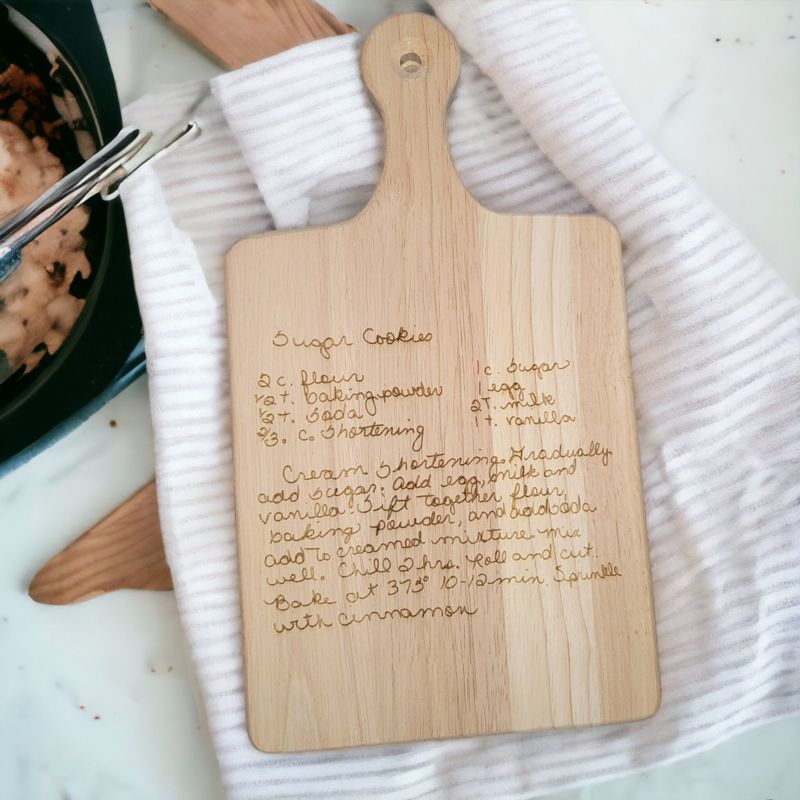 Sugar Cookies
2 c. flour
1/2 t. baking powder
1/2 t. soda
2/3. c. shortening
1 c. sugar
1 egg
2T. milk
1 t. vanilla
Cream shortening. Gradually
add sugar. Add egg, milk and
vanilla. Sift together flour,
baking powder, and add soda
add to creamed mixture. Mix
well. Chill 2 hrs. Roll and cut.
Bake at 375° 10-12 min. Sprinkle
with cinnamon